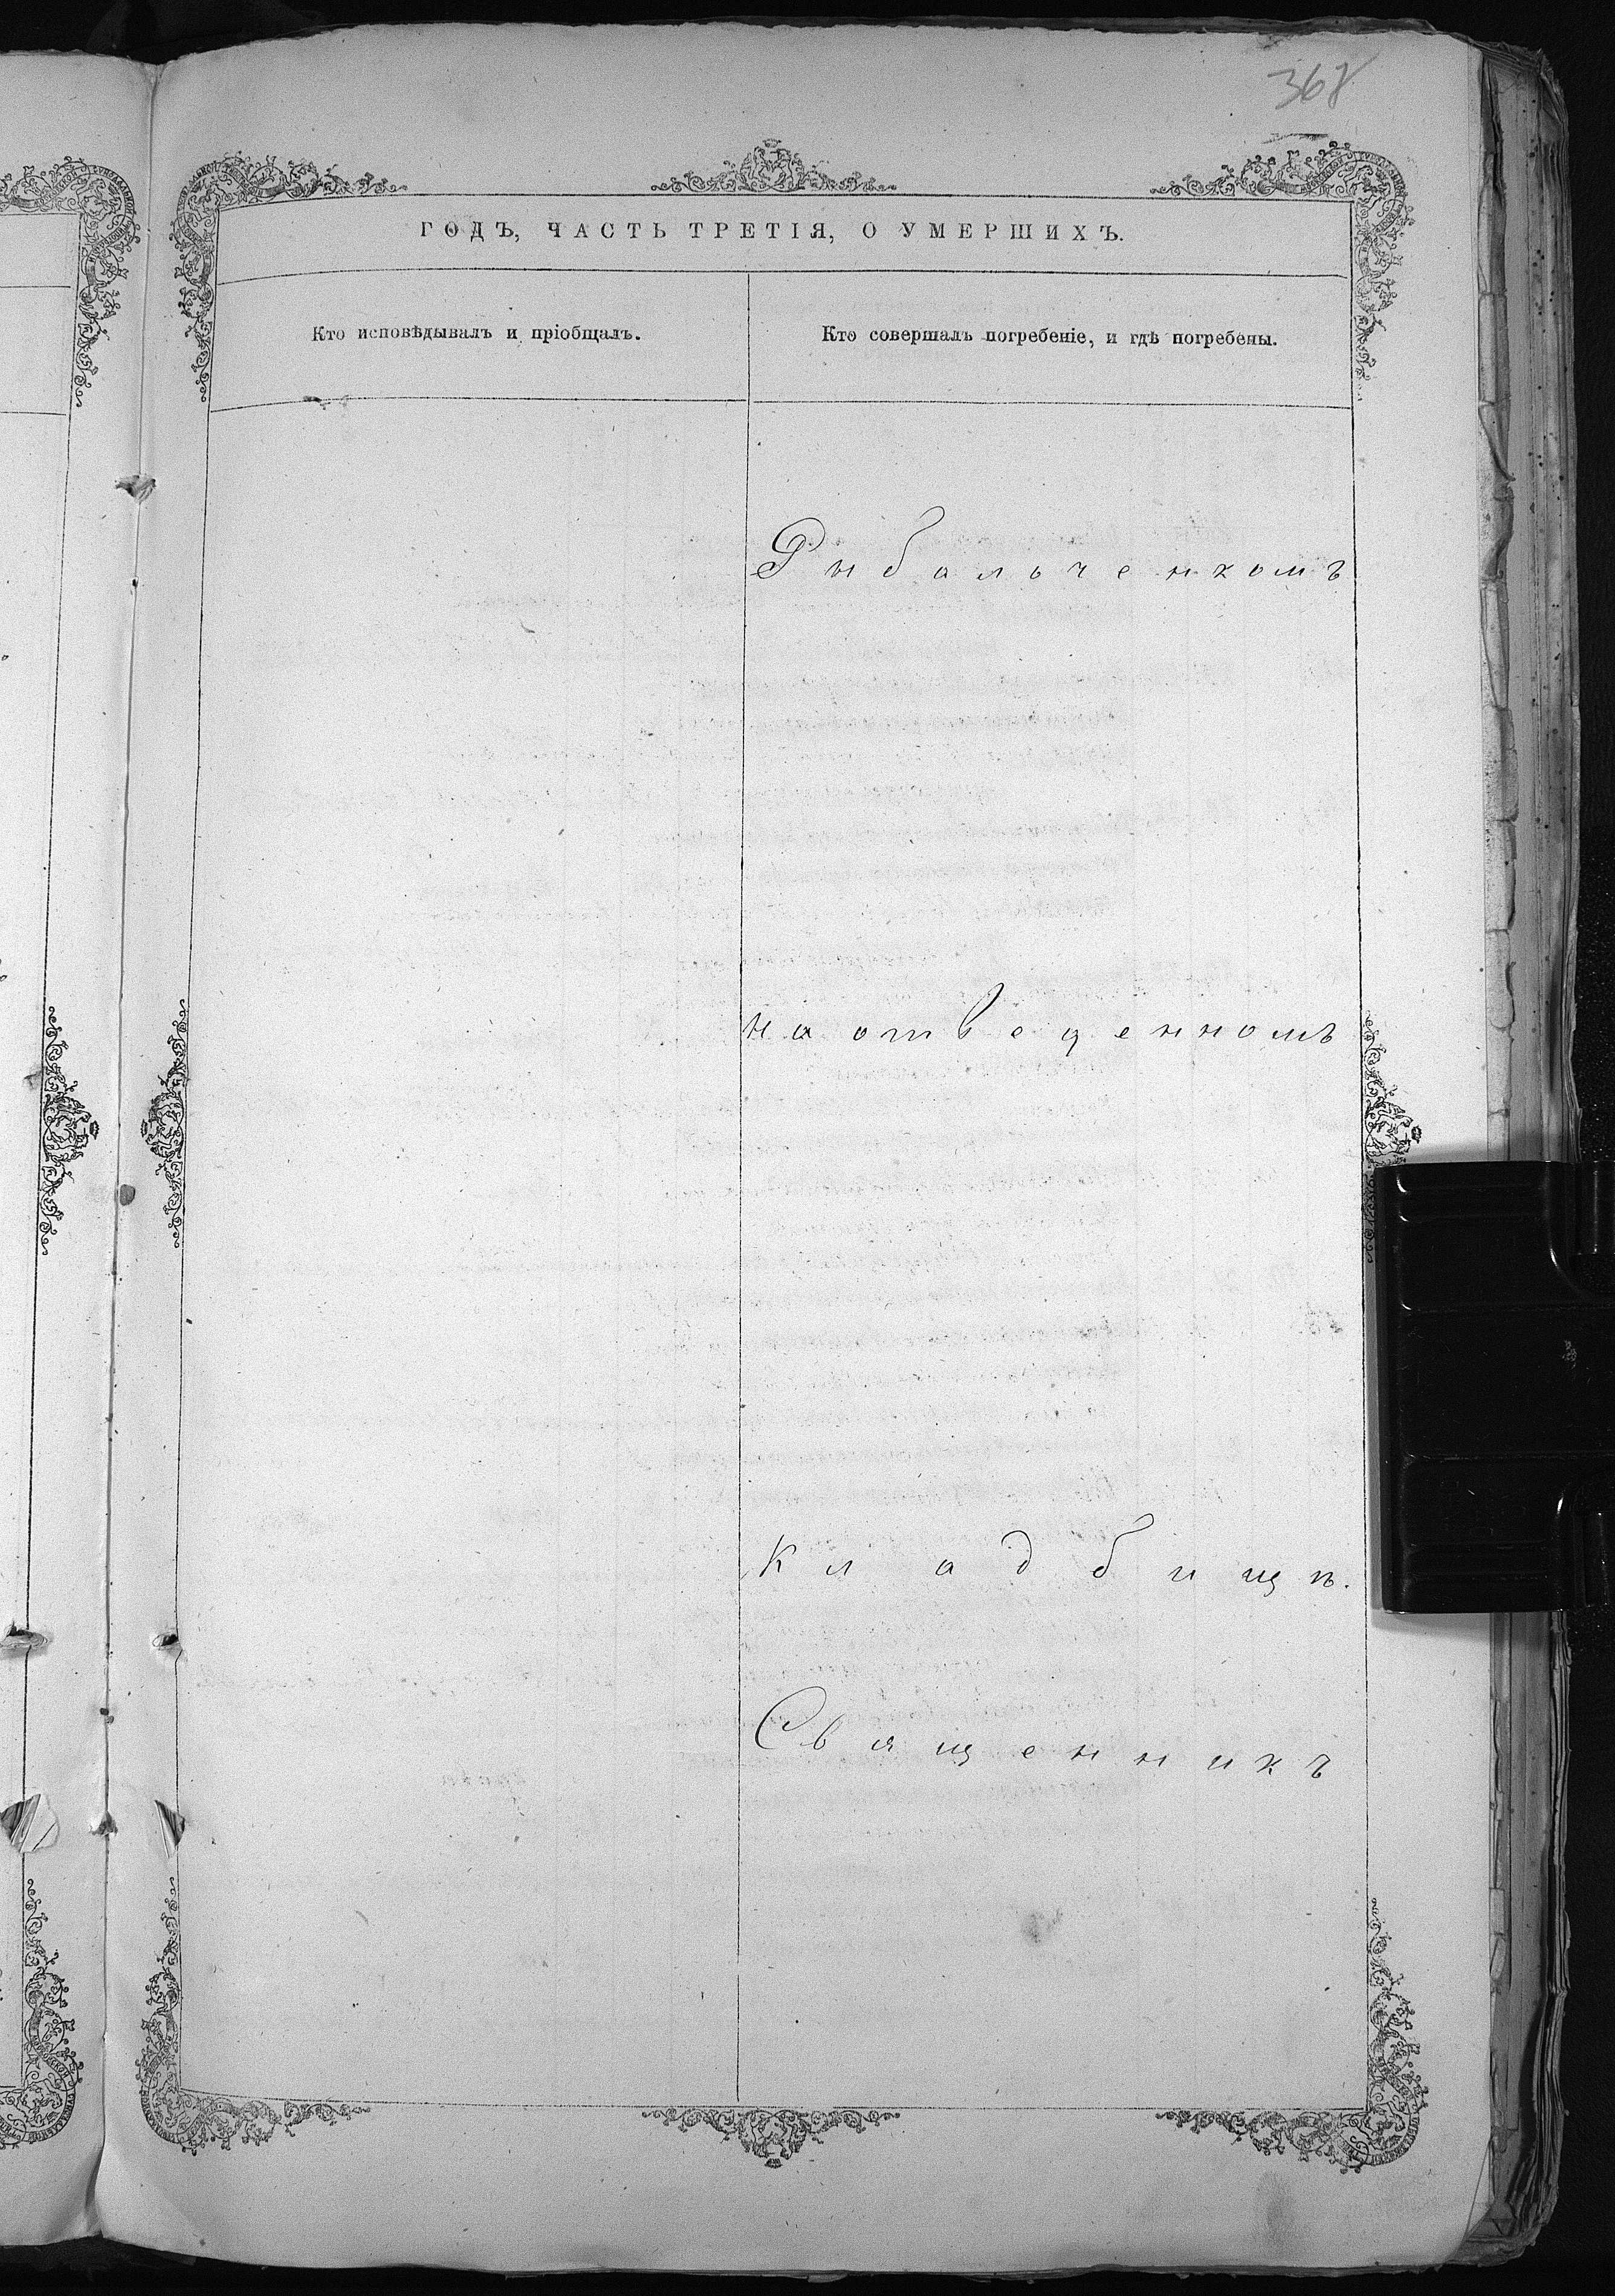 368
ГОДЪ, ЧАСТЬ ТРЕТІЯ, О УМЕРШИХЪ.
Кто исповѣдывалъ и пріобщалъ.
Кто совершалъ погребеніе, и гдѣ погребены.
Рыбальченкомъ
на отведенномъ
кладбищѣ.
Священникъ